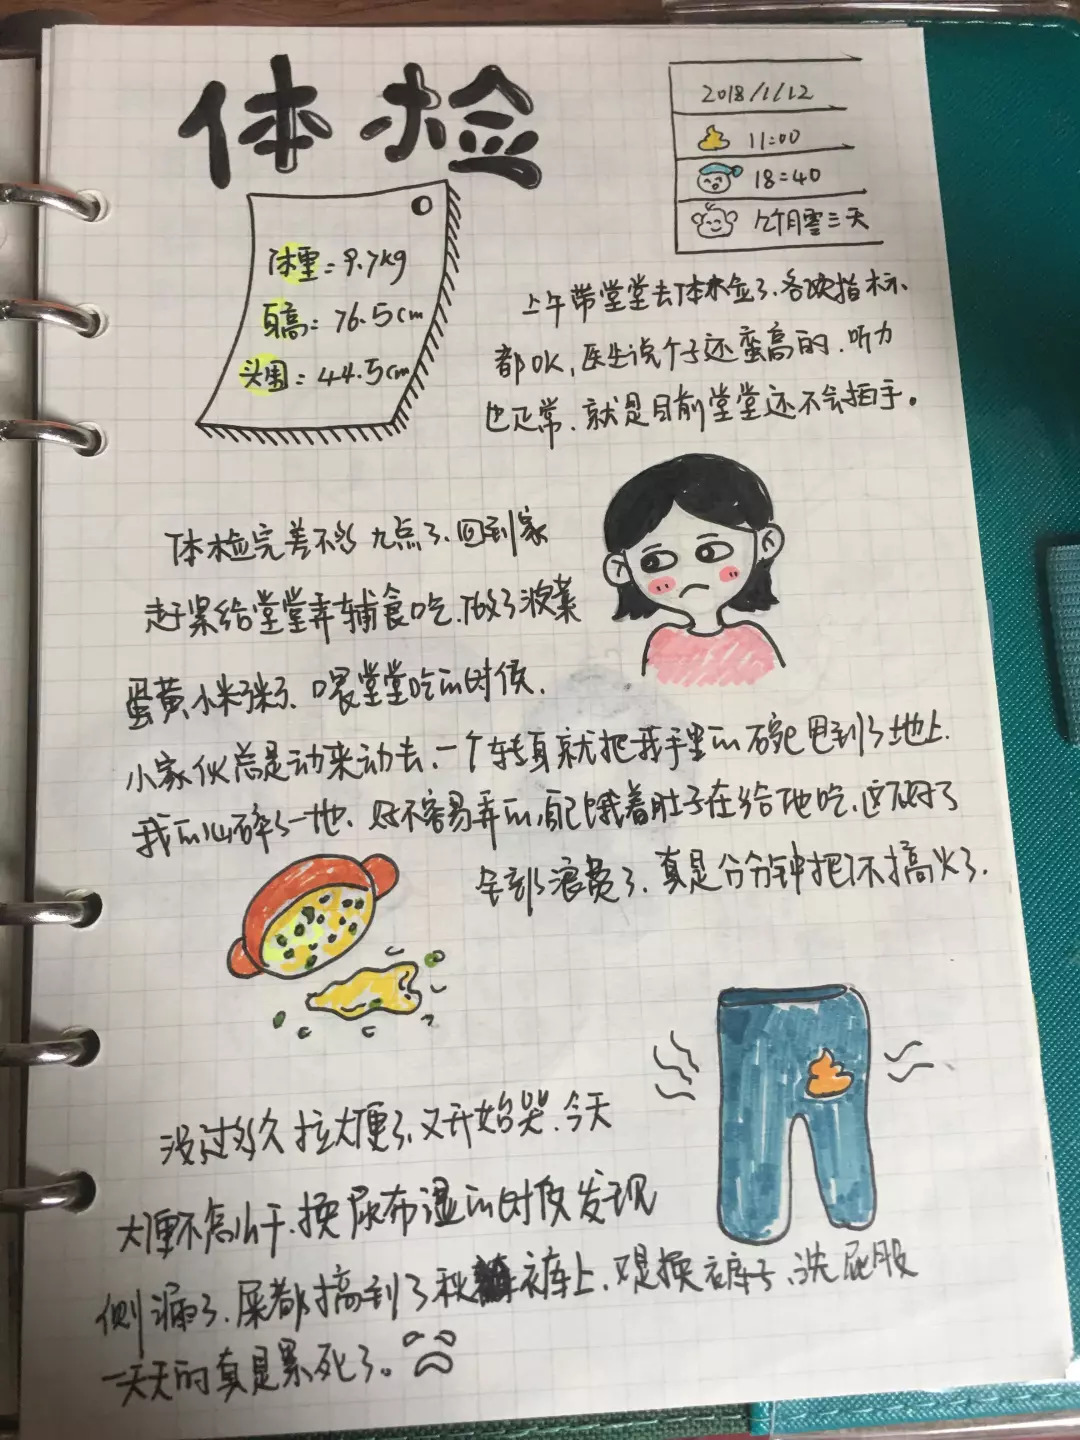 体检
2018/1/12
11:00
18:40
个月零三天
体重:9.7kg
身高:76.5cm
头围:44.5cm
上午带堂堂去体检了、各项指标
都OK,医生说个子还蛮高的、听力
也正常、就是目前堂堂还不会拍手。
体检完差不多九点了、回到家
赶紧给堂堂弄辅食吃、做了菠菜
蛋黄小米粥、喂堂堂吃的时候、
小家伙总是动来动去、一个转身就把我手里的碗甩到了地上、
我的心碎了一地、好不容易弄的,自己饿着肚子在给他吃、这下好了
全部浪费了、真是分分钟把你搞火了、
没过多久拉大便了、又开始哭、今天
大便不怎么干、换尿布湿的时候发现
侧漏了、屎都搞到了秋裤上、又是换裤子、洗屁股
一天天的真是累死了。